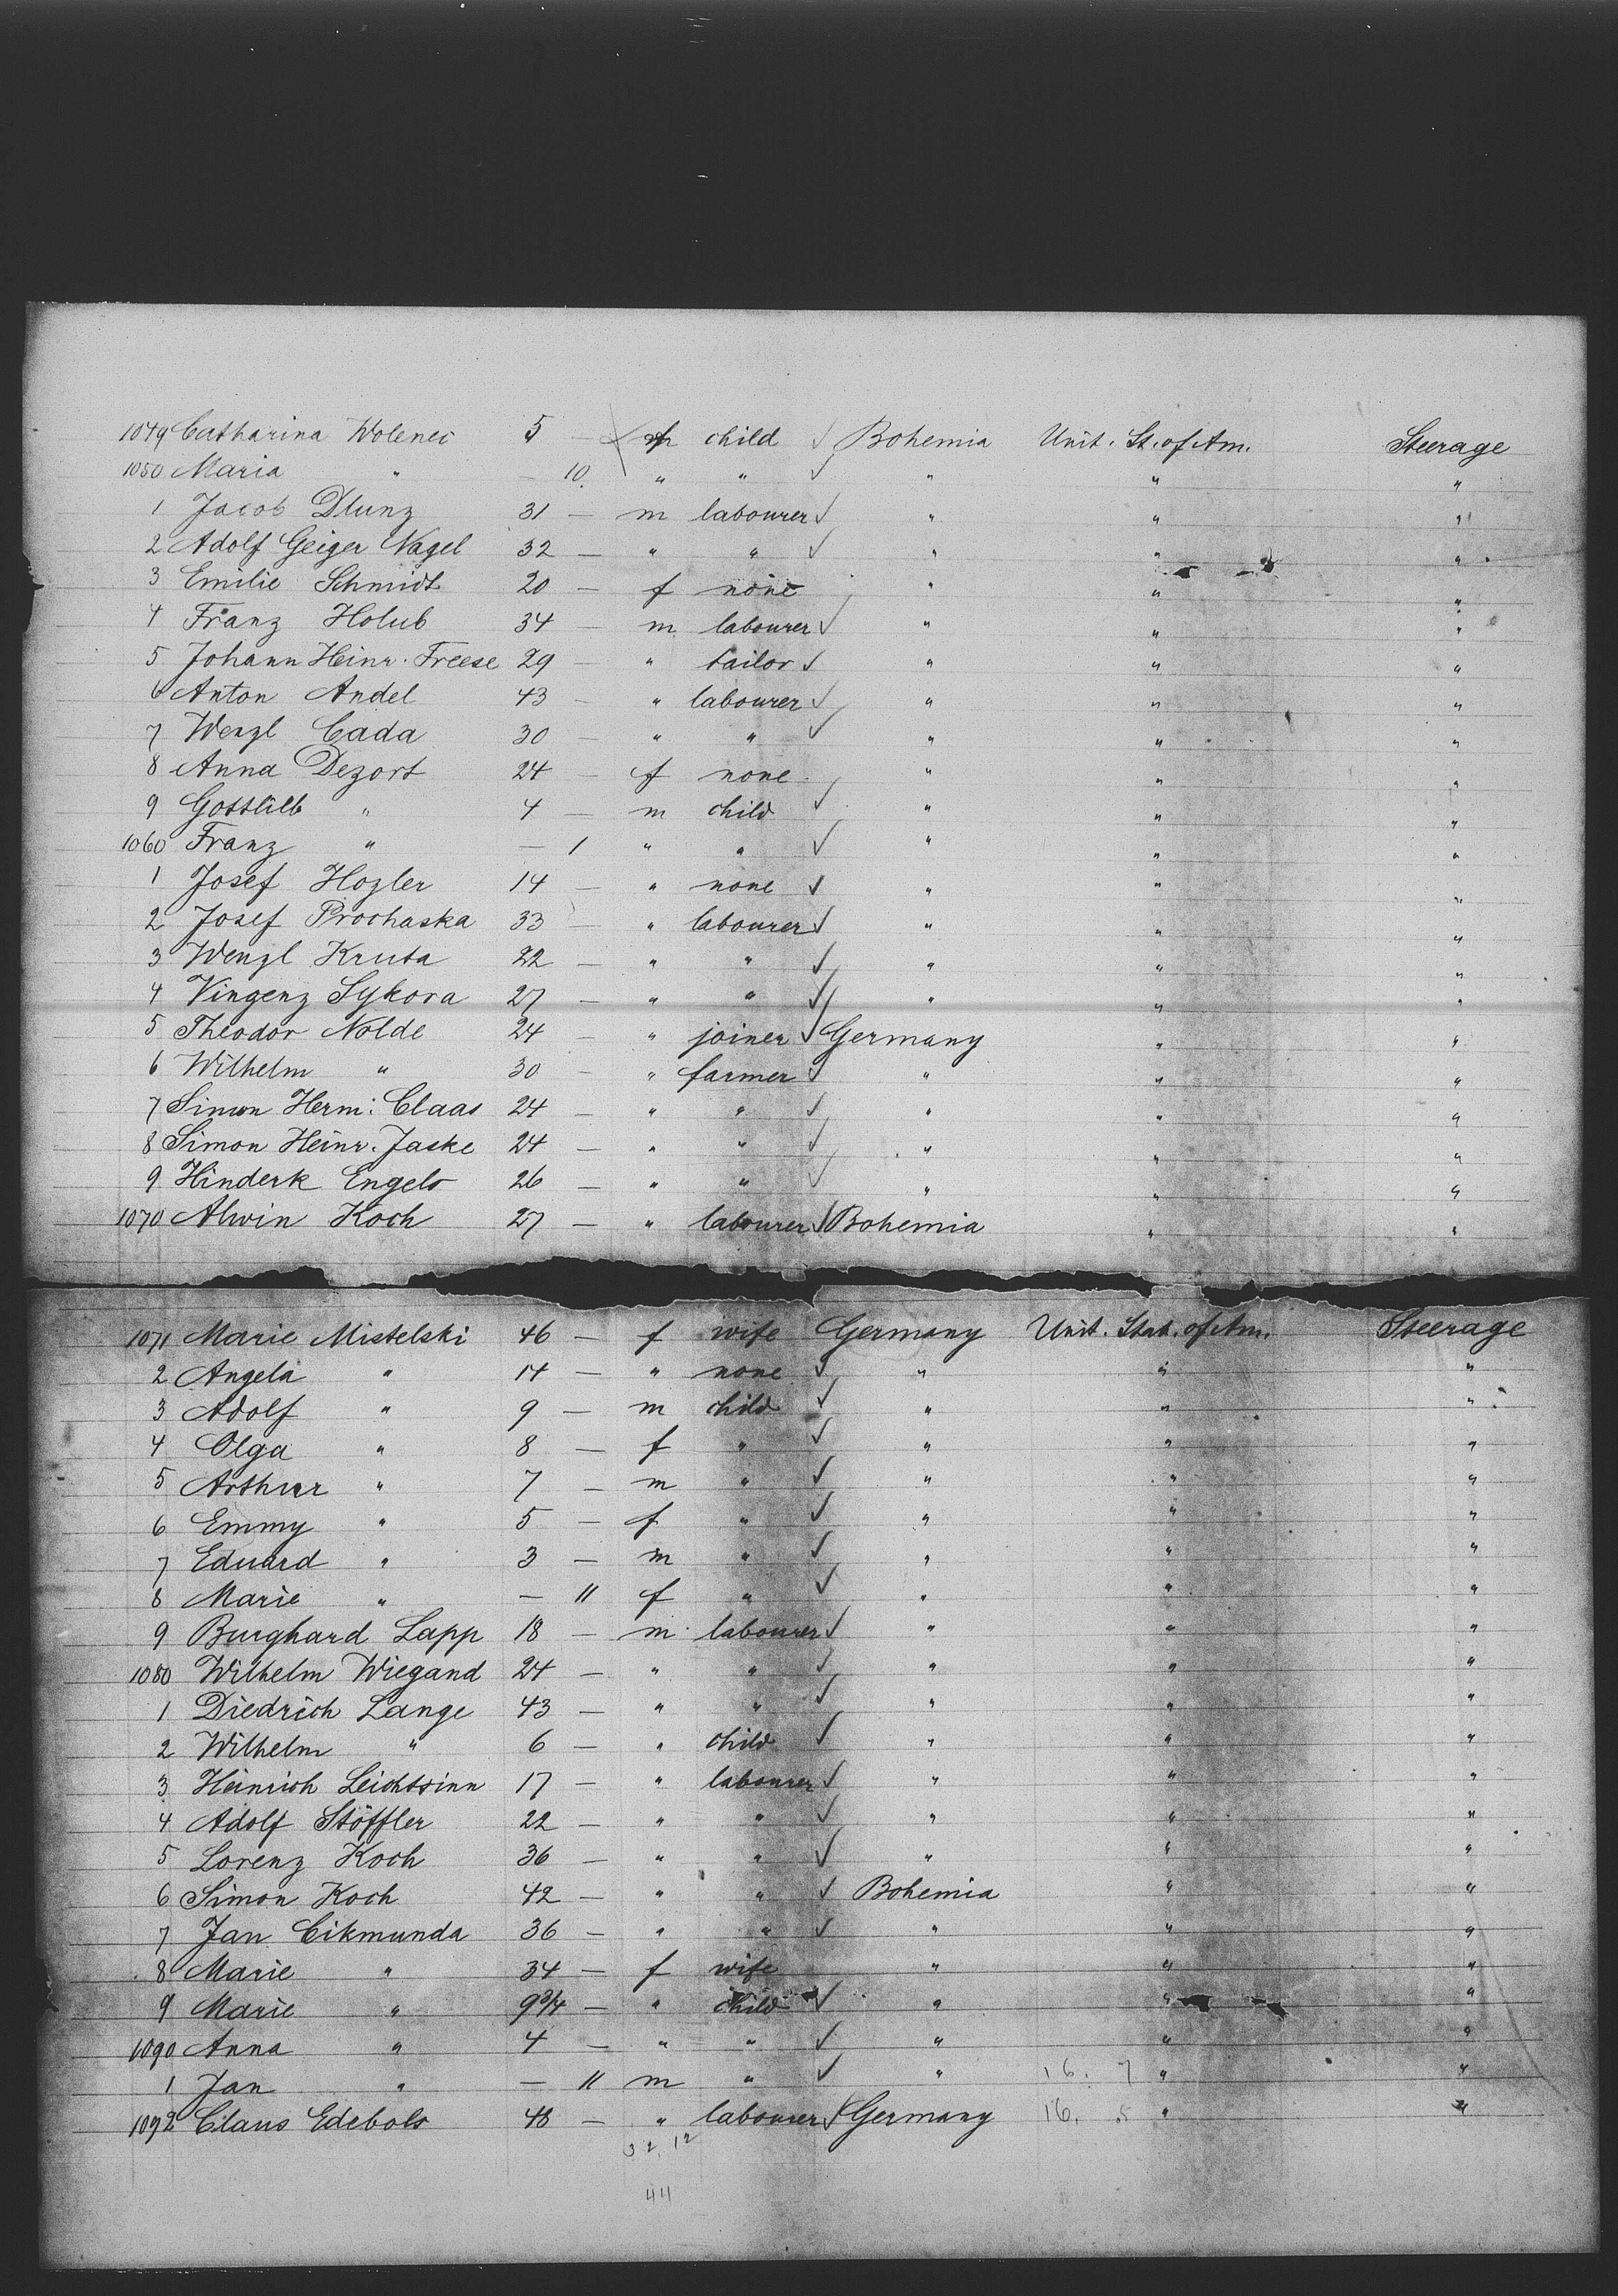 1049 Catharina Wolenec 5 — f child ✓ Bohemia Unit. St. of Am. Steerage
1050 Maria " — 10. " " ✓ " " "
1 Jacob Dlunz 31 — m labourer ✓ " " "
2 Adolf Geiger Nagel 32 — " " ✓ " " "
3 Emilie Schmidt 20 — f none " " "
4 Franz Holub 34 — m labourer ✓ " " "
5 Johann Heinr. Freese 29 — " tailor ✓ " " "
6 Anton Andel 43 — " labourer ✓ " " "
7 Wenzl Cada 30 — " " ✓ " " "
8 Anna Dezort 24 — f none " " "
9 Gottlieb " 4 — m child ✓ " " "
1060 Franz " — 1 " " ✓ " " "
1 Josef Hozler 14 — " none ✓ " " "
2 Josef Prochaska 33 — " labourer ✓ " " "
3 Wenzl Kruta 22 — " " ✓ " " "
4 Vinzenz Sykora 27 — " " ✓ " " "
5 Theodor Nolde 24 — " joiner ✓ Germany " "
6 Wilhelm " 30 — " farmer ✓ " " "
7 Simon Herm: Claas 24 — " " ✓ " " "
8 Simon Heinr. Jaske 24 — " " ✓ " " "
9 Hinderk Engels 26 — " " ✓ " " "
1070 Alwin Koch 27 — " labourer ✓ Bohemia " "
1071 Marie Mistelski 46 — f wife Germany Unit. Stat. of Am. Steerage
2 Angela " 14 — " none ✓ " " "
3 Adolf " 9 — m child ✓ " " "
4 Olga " 8 — f " ✓ " " "
5 Arthur " 7 — m " ✓ " " "
6 Emmy " 5 — f " ✓ " " "
7 Eduard " 3 — m " ✓ " " "
8 Marie " — 11 f " ✓ " " "
9 Burghard Lapp 18 — m labourer ✓ " " "
1080 Wilhelm Wiegand 24 — " " ✓ " " "
1 Diedrich Lange 43 — " " ✓ " " "
2 Wilhelm " 6 — " child ✓ " " "
3 Heinrich Leichtsinn 17 — " labourer ✓ " " "
4 Adolf Stöffler 22 — " " ✓ " " "
5 Lorenz Koch 36 — " " ✓ " " "
6 Simon Koch 42 — " " ✓ Bohemia " "
7 Jan Cikmunda 36 — " " ✓ " " "
8 Marie " 34 — f wife " " "
9 Marie " 9 3/4 — " child ✓ " " "
1090 Anna " 4 — " " ✓ " " "
1 Jan " — 11 m " ✓ " 16. 7 " "
1092 Claus Edebols 48 — " labourer ✓ Germany 16. 5 " "
32. 12
44